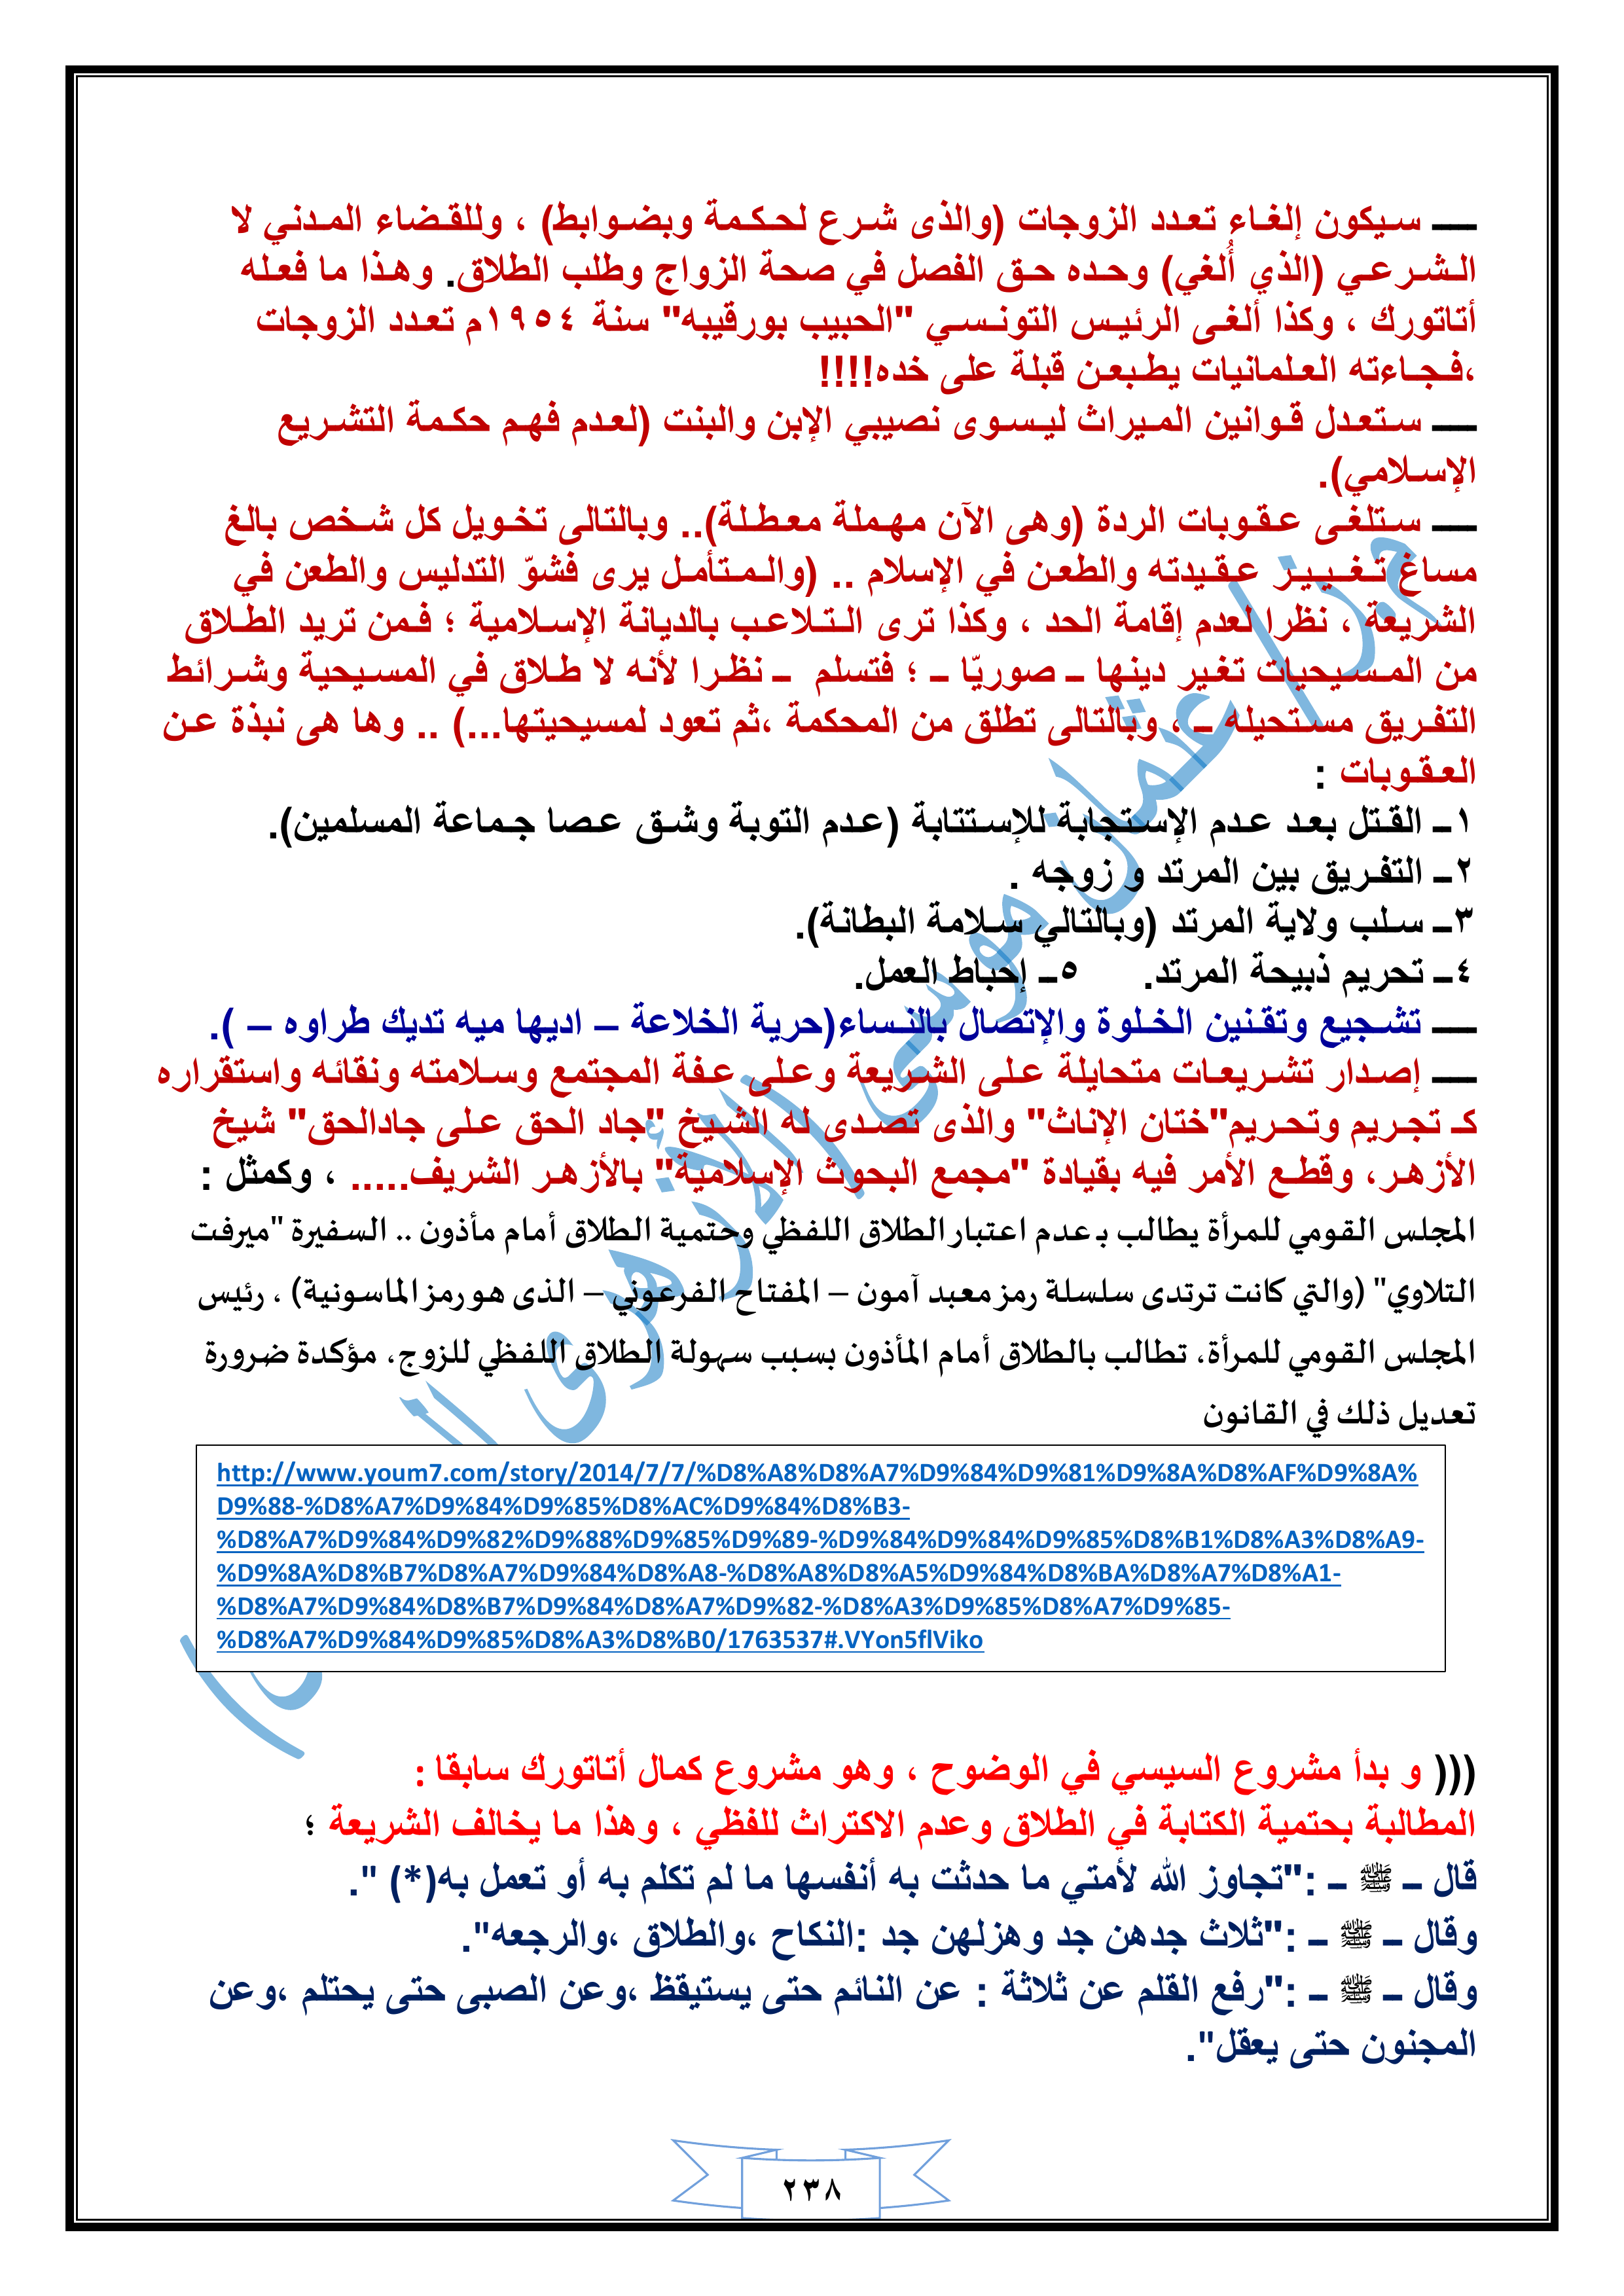 ــــ سيكون إلغاء تعدد الزوجات (والذى شرع لحكمة وبضوابط) ، وللقضاء المدني لا
الشرعي (الذي أُلغي) وحده حق الفصل في صحة الزواج وطلب الطلاق. وهذا ما فعله
أتاتورك ، وكذا ألغى الرئيس التونسي "الحبيب بورقيبه" سنة ١٩٥٤م تعدد الزوجات
،فجاءته العلمانيات يطبعن قبلة على خده!!!!
ــــ ستعدل قوانين الميراث ليسوى نصيبي الإبن والبنت (لعدم فهم حكمة التشريع
الإسلامي).
ــــ ستلغى عقوبات الردة (وهى الآن مهملة معطلة).. وبالتالى تخويل كل شخص بالغ
مساغ تغيير عقيدته والطعن في الإسلام .. (والمتأمل يرى فشوّ التدليس والطعن في
الشريعة ، نظرا لعدم إقامة الحد ، وكذا ترى التلاعب بالديانة الإسلامية ؛ فمن تريد الطلاق
من المسيحيات تغير دينها ــ صوريّا ــ ؛ فتسلم ــ نظرا لأنه لا طلاق في المسيحية وشرائط
التفريق مستحيله ــ ، وبالتالى تطلق من المحكمة ،ثم تعود لمسيحيتها...) .. وها هى نبذة عن
العقوبات :
١ــ القتل بعد عدم الإستجابة للإستتابة (عدم التوبة وشق عصا جماعة المسلمين).
٢ــ التفريق بين المرتد و زوجه .
٣ــ سلب ولاية المرتد (وبالتالي سلامة البطانة).
٤ــ تحريم ذبيحة المرتد. ٥ــ إحباط العمل.
ــــ تشجيع وتقنين الخلوة والإتصال بالنساء(حرية الخلاعة – اديها ميه تديك طراوه – ).
ــــ إصدار تشريعات متحايلة على الشريعة وعلى عفة المجتمع وسلامته ونقائه واستقراره
كـ تجريم وتحريم"ختان الإناث" والذى تصدى له الشيخ "جاد الحق على جادالحق" شيخ
الأزهر، وقطع الأمر فيه بقيادة "مجمع البحوث الإسلامية" بالأزهر الشريف..... ، وكمثل :
المجلس القومي للمرأة يطالب بـعدم اعتبار الطلاق اللفظي وحتمية الطلاق أمام مأذون .. السفيرة "ميرفت
التلاوي" (والتي كانت ترتدى سلسلة رمز معبد آمون – المفتاح الفرعوني – الذى هو رمز الماسونية) ، رئيس
المجلس القومي للمرأة، تطالب بالطلاق أمام المأذون بسبب سهولة الطلاق اللفظي للزوج، مؤكدة ضرورة
تعديل ذلك في القانون
http://www.youm7.com/story/2014/7/7/%D8%A8%D8%A7%D9%84%D9%81%D9%8A%D8%AF%D9%8A%
D9%88-%D8%A7%D9%84%D9%85%D8%AC%D9%84%D8%B3-
%D8%A7%D9%84%D9%82%D9%88%D9%85%D9%89-%D9%84%D9%84%D9%85%D8%B1%D8%A3%D8%A9-
%D9%8A%D8%B7%D8%A7%D9%84%D8%A8-%D8%A8%D8%A5%D9%84%D8%BA%D8%A7%D8%A1-
%D8%A7%D9%84%D8%B7%D9%84%D8%A7%D9%82-%D8%A3%D9%85%D8%A7%D9%85-
%D8%A7%D9%84%D9%85%D8%A3%D8%B0/1763537#.VYon5flViko
((( و بدأ مشروع السيسي في الوضوح ، وهو مشروع كمال أتاتورك سابقا :
المطالبة بحتمية الكتابة في الطلاق وعدم الاكتراث للفظي ، وهذا ما يخالف الشريعة ؛
قال ــ ﷺ ــ :"تجاوز الله لأمتي ما حدثت به أنفسها ما لم تكلم به أو تعمل به(*) ".
وقال ــ ﷺ ــ :"ثلاث جدهن جد وهزلهن جد :النكاح ،والطلاق ،والرجعه".
وقال ــ ﷺ ــ :"رفع القلم عن ثلاثة : عن النائم حتى يستيقظ ،وعن الصبى حتى يحتلم ،وعن
المجنون حتى يعقل".
٢٣٨